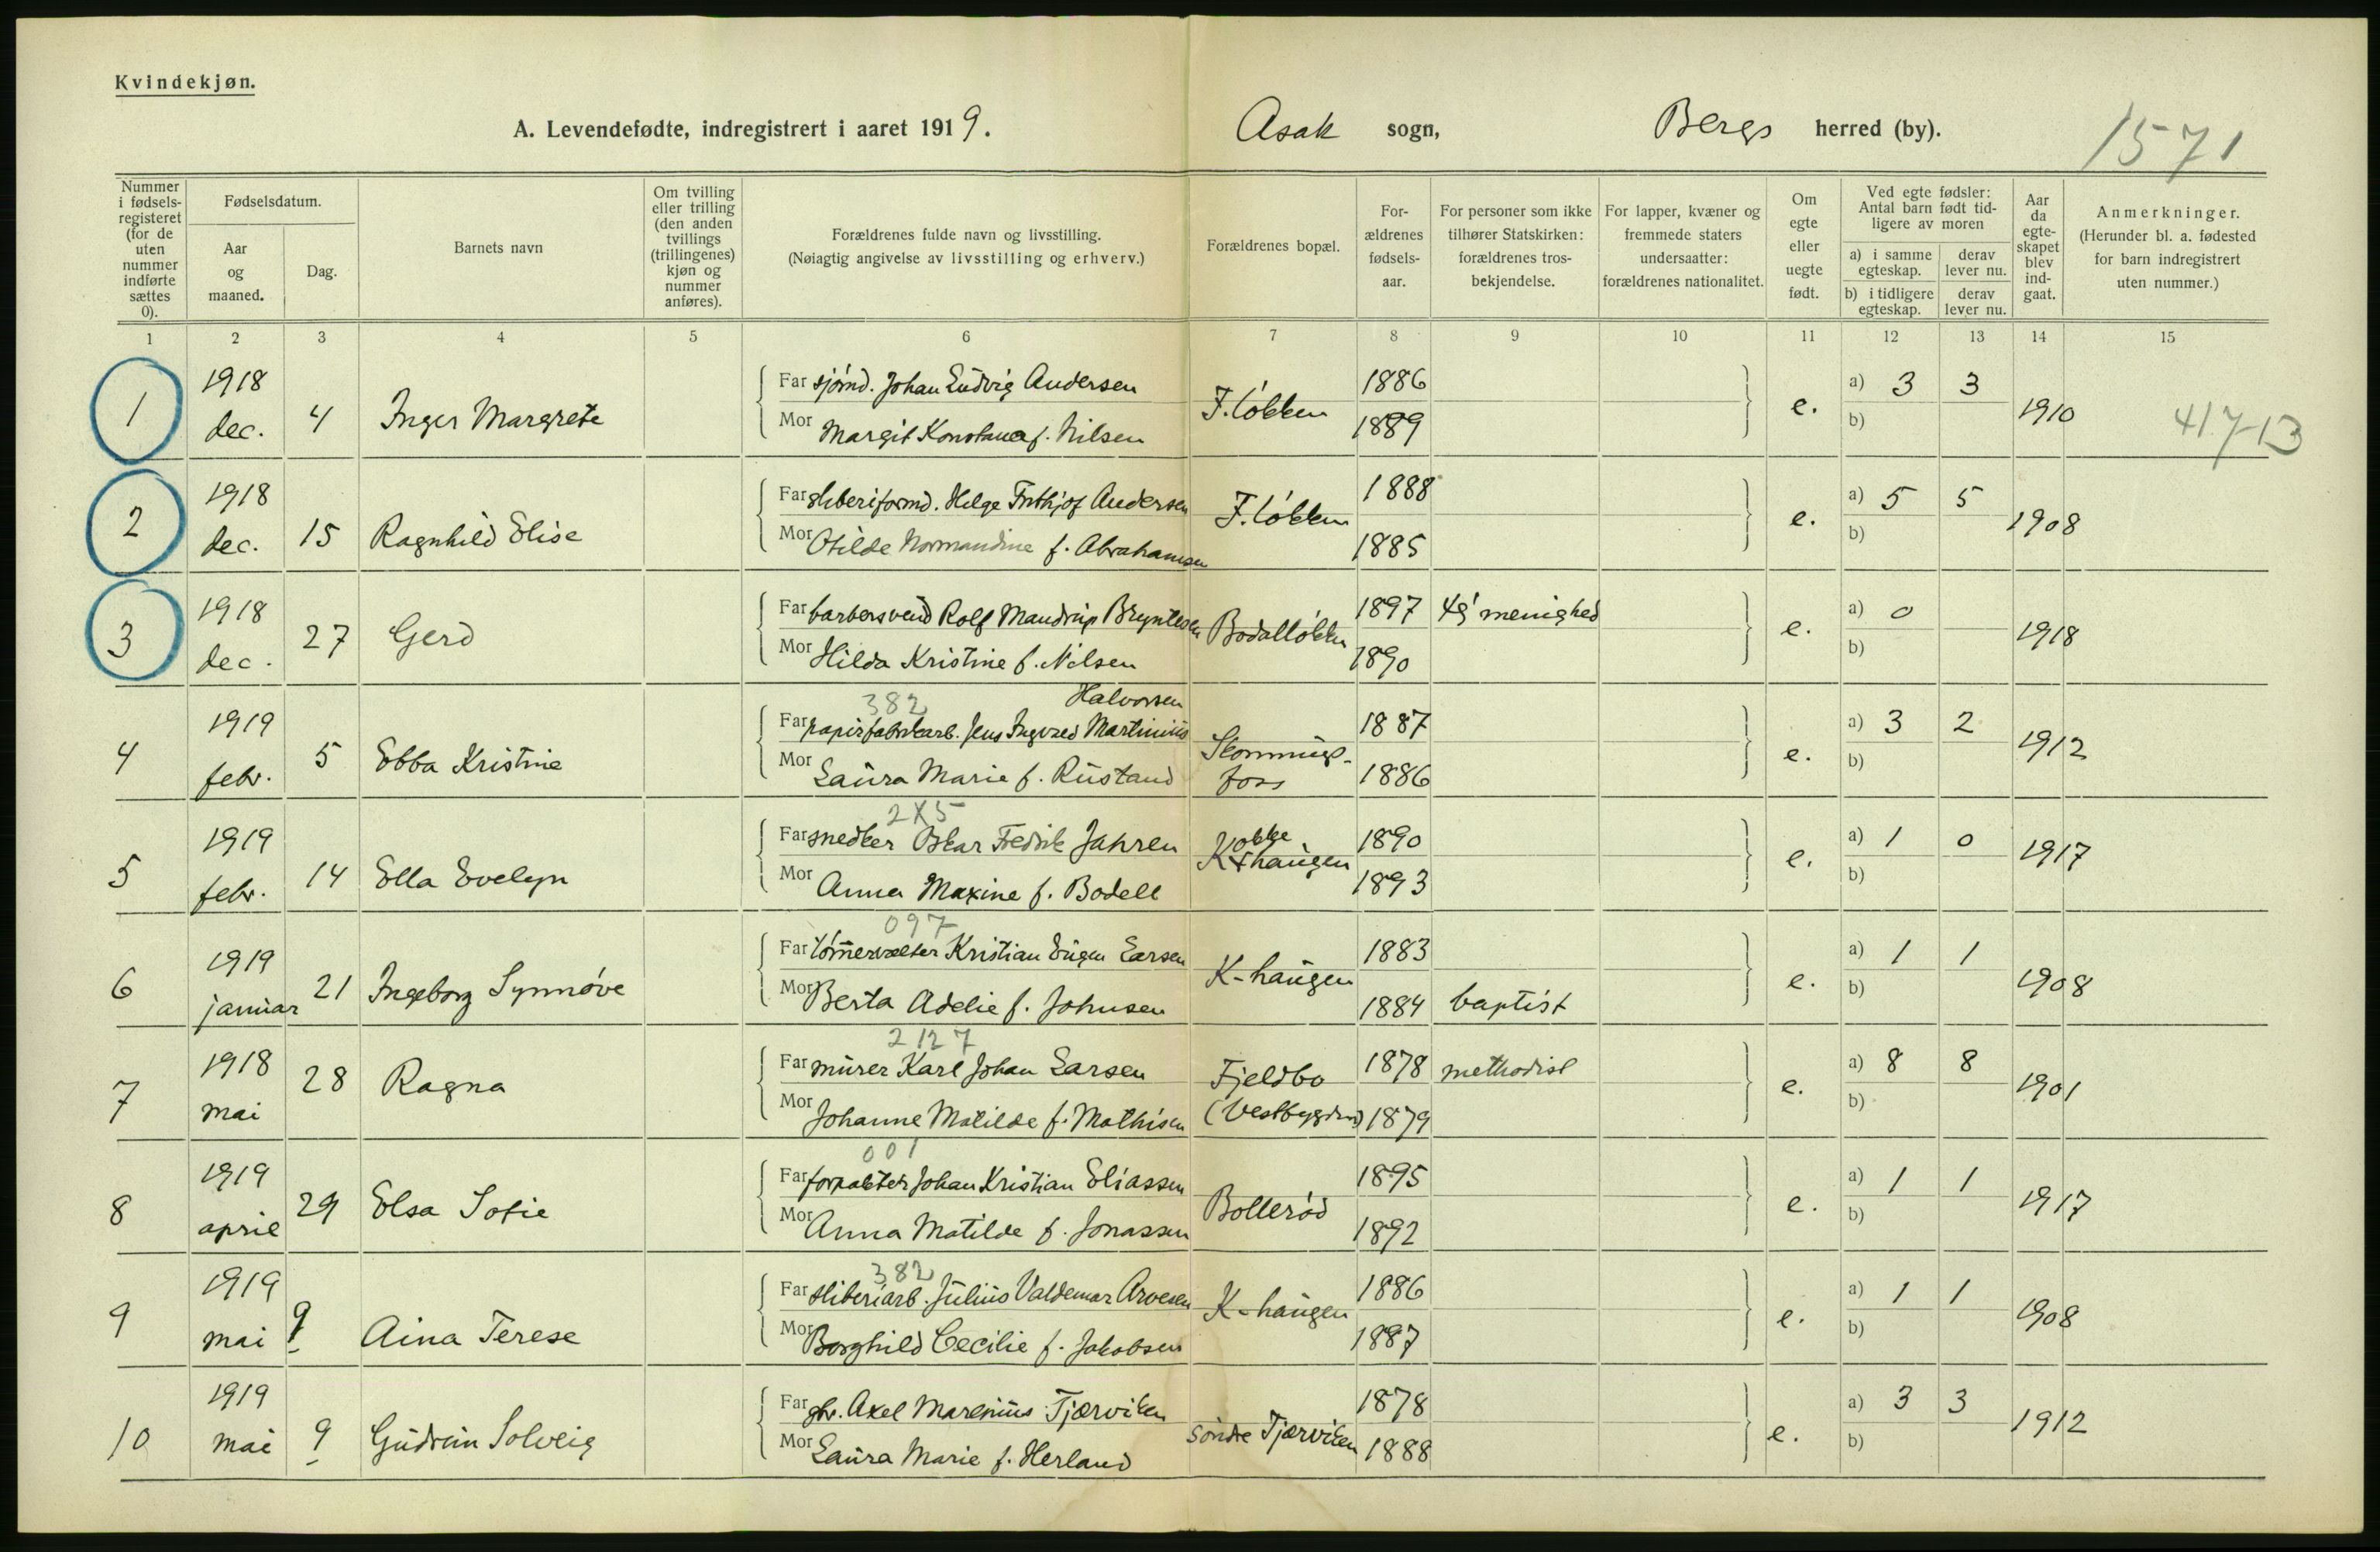 Kvindekjøn.
A. Levendefødte, indregistrert i aaret 1919. Asak sogn, Bergs herred (by).
1571
Nummer i fødselsregisteret (for de uten nummer indførte sættes 0).
Fødselsdatum.
Aar og maaned.
Dag.
Barnets navn
Om tvilling eller trilling (den anden tvillings (trillingenes) kjøn og nummer anføres).
Forældrenes fulde navn og livsstilling.
(Nøiagtig angivelse av livsstilling og erhverv.)
Forældrenes bopæl.
Forældrenes fødselsaar.
For personer som ikke tilhører Statskirken: forældrenes trosbekjendelse.
For lapper, kvæner og fremmede staters undersaatter: forældrenes nationalitet.
Om egte eller uegte født.
Ved egte fødsler: Antal barn født tidligere av moren
a) i samme egteskap. derav lever nu.
b) i tidligere egteskap. derav lever nu.
Aar da egteskapet blev indgaat.
Anmerkninger.
(Herunder bl. a. fødested for barn indregistrert uten nummer.)
1 2 3 4 5 6 7 8 9 10 11 12 13 14 15
1 1918 dec. 4 Inger Margrete
Far sjømd. Johan Ludvig Andersen 1886 a) 3 3
Mor Margit Konstance f. Nilsen F. løkken 1889 e. b) 1910
417-13
2 1918 dec. 15 Ragnhild Elise
Far sliberiformd. Helge Frithjof Andersen 1888 a) 5 5
Mor Otilde Normandine f. Abrahamsen F. løkken 1885 e. b) 1908
3 1918 dec. 27 Gerd
Far barbersvend Rolf Mandrup Bryntesen 1897 menighed a) 0
Mor Hilda Kristine f. Nilsen Bodalløkken 1890 e. b) 1918
382 Halvorsen
4 1919 febr. 5 Ebba Kristine
Far papirfabrikarb. Jens Ingvald Martinius 1887 a) 3 2
Mor Laura Marie f. Rustand foss 1886 e. b) 1912
2X5
5 1919 febr. 14 Ella Evelyn
Far snedker Oskar Fredrik Jahren 1890 a) 1 0
Mor Anna Maxine f. Bodell haugen 1893 e. b) 1917
097
6 1919 januar 21 Ingeborg Synnøve
Far tømmervælter Kristian Eugen Larsen 1883 a) 1 1
Mor Berta Adelie f. Johnsen K-haugen 1884 baptist e. b) 1908
2127
7 1918 mai 28 Ragna
Far murer Karl Johan Larsen 1878 methodist a) 8 8
Mor Johanne Matilde f. Mathisen Fjeldbo (Vestbygden) 1879 e. b) 1901
001
8 1919 april 29 Elsa Sofie
Far forpakter Johan Kristian Eliassen 1895 a) 1 1
Mor Anna Matilde f. Jonassen Bollerød 1892 e. b) 1917
382
9 1919 mai 9 Aina Terese
Far sliberiarb. Julius Valdemar Arvesen 1886 a) 1 1
Mor Borghild Cecilie f. Jakobsen K-haugen 1887 e. b) 1908
10 1919 mai 9 Gudrun Solveig
Far gbr. Axel Marenius Tjærviken 1878 a) 3 3
Mor Laura Marie f. Herland søndre Tjærviken 1888 e. b) 1912